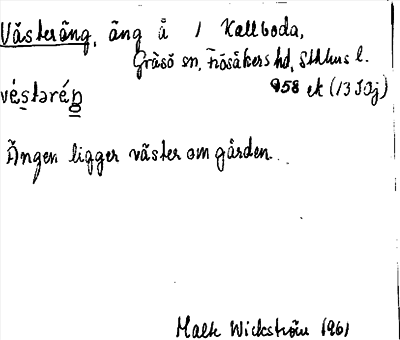 Västeräng, äng å 1 Kallboda,
Gräsö sn, Frösåkers hd, Sthlms l.
958 ek (13 I 0j)
véstəréŋ
Ängen ligger väster om gården.
Wickström 1961